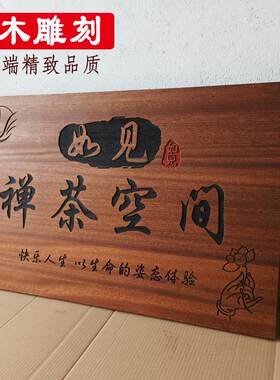 木雕刻
端精致品质
如见
如见
禅茶空间
快乐人生 以生命的姿态体验